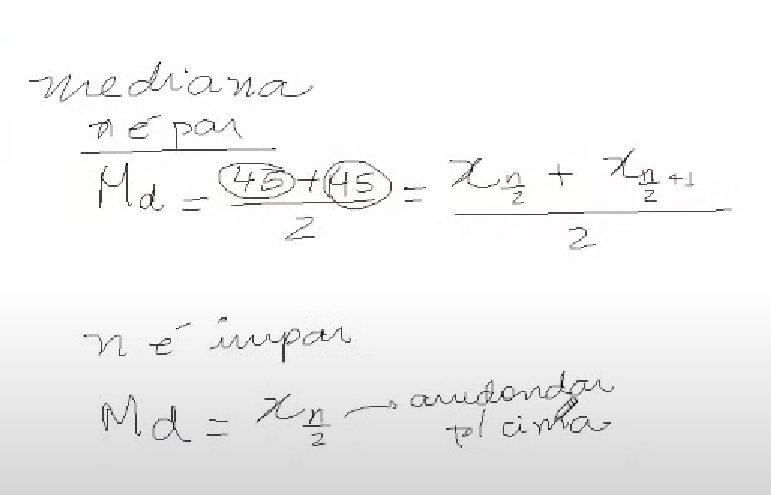 mediana
n é par
Md = 45 + 45 / 2 = x n/2 + x n/2 +1 / 2
n é impar
Md = x n/2 → arredondar
p/ cima